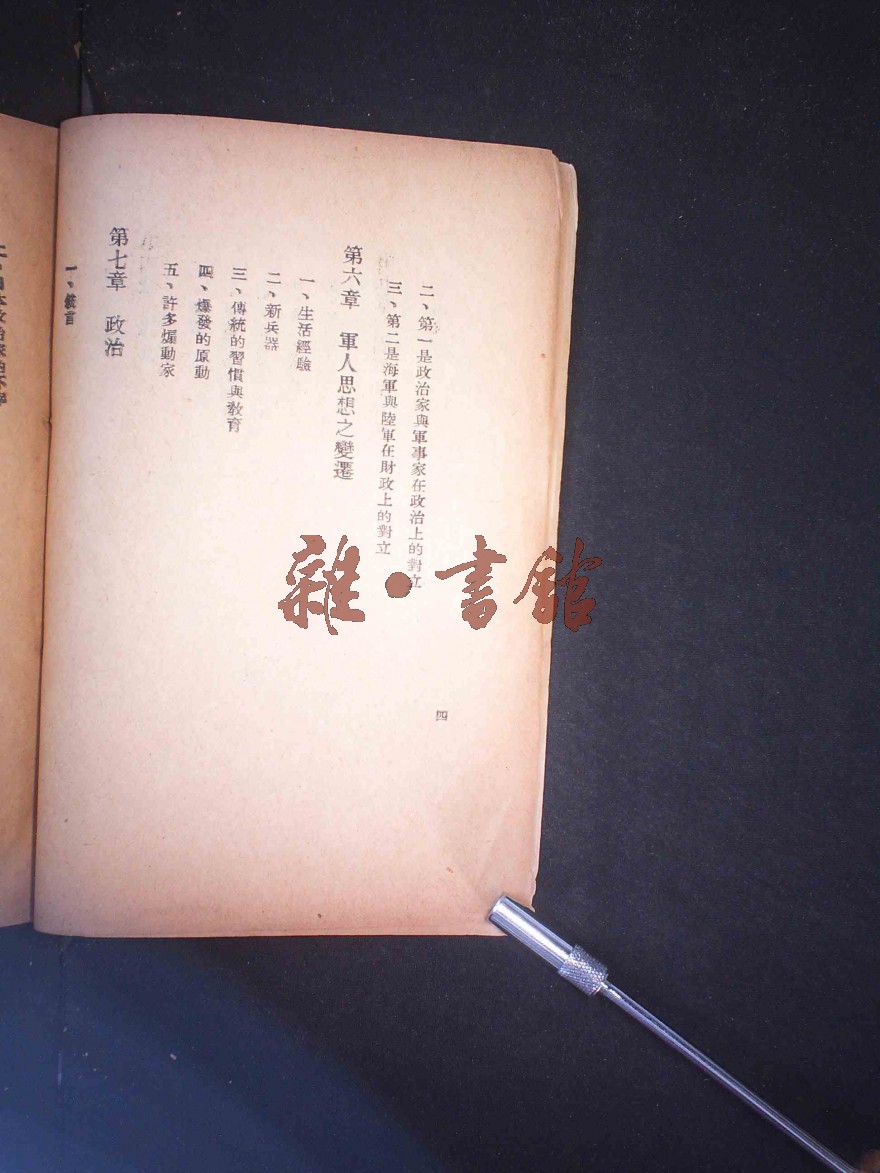 二、第一是政治家與軍事家在政治上的對立
三、第二是海軍與陸軍在財政上的對立
第六章　軍人思想之變遷
一、生活經驗
二、新兵器
三、傳統的習慣與教育
四、爆發的原動
五、許多煽動家
第七章　政治
一、緒言
四
雜·書館